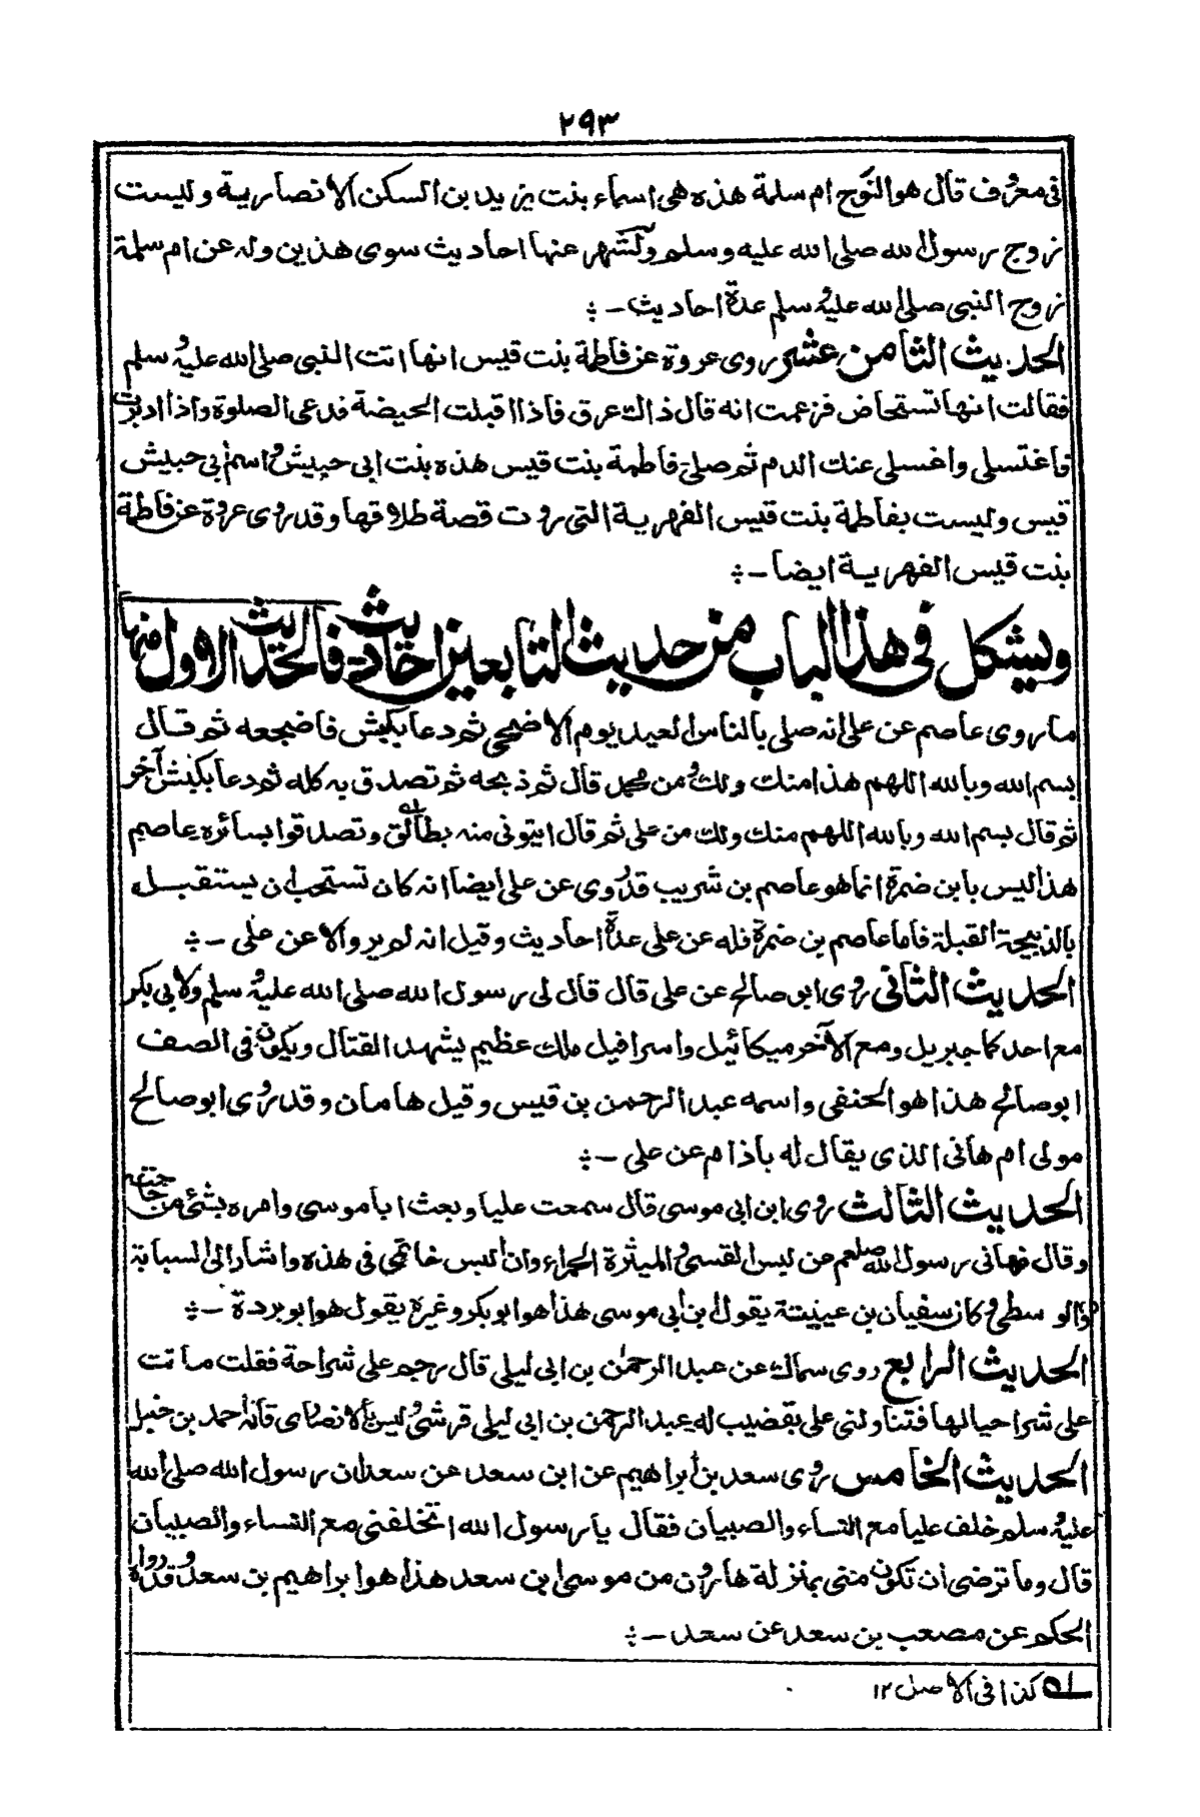 ٢٩٣
فى معروف قال هو النوح ام سلمة هذه هى اسماء بنت يزيد بن السكن الانصارية وليست
زوج رسول الله صلى الله عليه وسلم ولشهر عنها احاديث سوى هذين وله عن ام سلمة
زوج النبى صلى الله عليه وسلم عدة احاديث -:
الحديث الثامن عشر روى عروة عن فاطمة بنت قيس انها اتت النبى صلى الله عليه وسلم
فقالت انها تستحاض فزعمت انه قال ذالك عرق فاذا اقبلت الحيضة فدعى الصلوة واذا ادبرت
فاغتسلى واغسلى عنك الدم ثم صلى فاطمة بنت قيس هذه بنت ابى حبيش واسم ابى حبيش
قيس وليست بفاطمة بنت قيس الفهرية التى روت قصة طلاقها وقد روى عروة عن فاطمة
بنت قيس الفهرية ايضا -:
ويشكل فى هذا الباب من حديث التابعين احاديث فالحديث الاول منها
ما روى عاصم عن على انه صلى بالناس العيد يوم الاضحى ثم دعا بكبش فاضجعه ثم قال
بسم الله وبالله اللهم هذا منك ولك ومن محمد قال ثم ذبحه ثم تصدق به كله ثم دعا بكبش آخر
ثم قال بسم الله وبالله اللهم منك ولك من على ثم قال ايتونى منه بطائق وتصدقوا بسائره عاصم
هذا ليس بابن ضمرة انما هو عاصم بن شريب قد روى عن على ايضا انه كان تستحب ان يستقبل
بالذبيحة القبلة فاما عاصم بن ضمرة فله عن على عدة احاديث وقيل انه لم يرو الا عن على -:
الحديث الثانى روى ابو صالح عن على قال قال لى رسول الله صلى الله عليه وسلم ولابى بكر
مع احدكما جبريل ومع الآخر ميكائيل واسرافيل ملك عظيم يشهد القتال ويكون فى الصف
ابو صالح هذا هو الحنفى واسمه عبد الرحمن بن قيس وقيل هامان وقد روى ابو صالح
مولى ام هانى الذى يقال له باذام عن على -:
الحديث الثالث روى ابن ابى موسى قال سمعت عليا وبعث ابا موسى وامره بشئ من حاجته
وقال نهانى رسول الله صلعم عن لبس القسى والميثرة الحمراء وان البس خاتمى فى هذه واشار الى السبابة
والوسطى وكان سفيان بن عيينة يقول ابن ابى موسى هذا هو ابو بكر وغيره يقول هو ابو بردة -:
الحديث الرابع روى سماك عن عبد الرحمٰن بن ابى ليلى قال رجم على شراحة فقلت ماتت
على شر احيالها فتناولنى على بقضيب له عبد الرحمن بن ابى ليلى قرشى ليس بالانصارى قاله احمد بن حنبل
الحديث الخامس روى سعد بن ابراهيم عن ابن سعد عن سعد ان رسول الله صلى الله
عليه وسلم خلف عليا مع النساء والصبيان فقال يا رسول الله اتخلفنى مع النساء والصبيان
قال وما ترضى ان تكون منى بمنزلة هارون من موسى ابن سعد هذا هو ابراهيم بن سعد وقد رواه
الحكم عن مصعب بن سعد عن سعد -:
له كذا فى الاصل ١٢